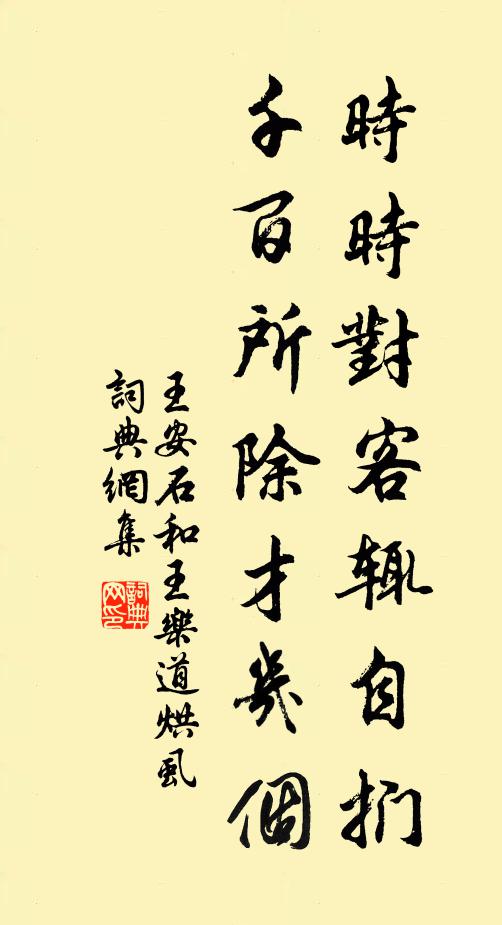 時時對客輒自捫
千百所除才幾個
王安石和王樂道烘虱
詞典網集
詞典網印